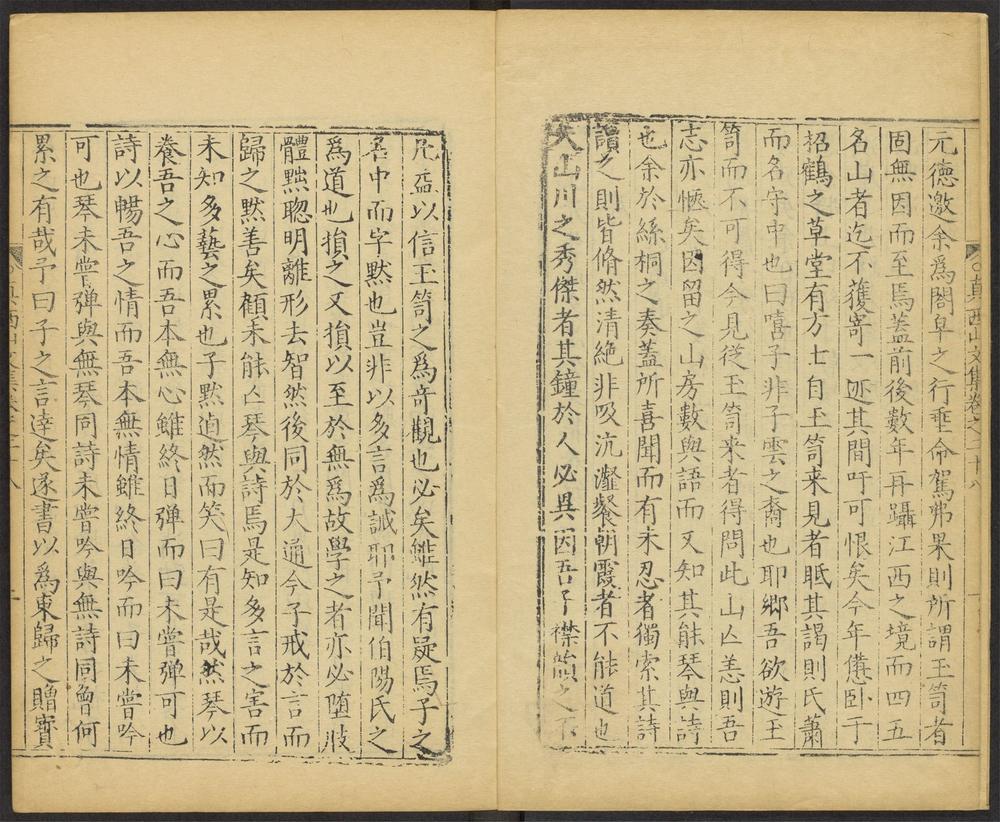 真西山文集卷之二十八
元德邀余爲閤皁之行垂命駕弗果則所謂玉笥者
固無因而至焉蓋前後數年再躡江西之境而四五
名山者迄不獲寄一迹其間吁可恨矣今年憊卧于
招鶴之草堂有方士自玉笥来見者眡其謁則氏蕭
而名守中也曰嘻子非子雲之裔也耶鄉吾欲遊玉
笥而不可得今見從玉笥来者得問此山亾恙則吾
志亦愜矣因留之山房數與語而又知其能琴與詩
也余於絲桐之奏蓋所喜聞而有未忍者獨索其詩
讀之則皆翛然清絶非吸沆瀣餐朝霞者不能道也
大山川之秀傑者其鐘於人必異因吾子襟韻之不
凡益以信玉笥之爲奇觀也必矣雖然有疑焉子之
名中而字默也豈非以多言爲誡耶予聞伯陽氏之
爲道也損之又損以至於無爲故學之者亦必堕肢
體黜聰明離形去智然後同於大通今子戒於言而
歸之默善矣顧未能亾琴與詩焉是知多言之害而
未知多藝之累也子默逌然而笑曰有是哉然琴以
養吾之心而吾本無心雖終日弹而曰未嘗弹可也
詩以暢吾之情而吾本無情雖終日吟而曰未嘗吟
可也琴未嘗弹與無琴同詩未嘗吟與無詩同曾何
累之有哉予曰子之言達矣遂書以爲東歸之贈寳